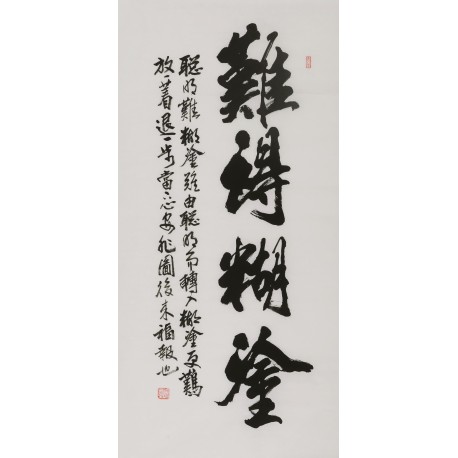 難得糊塗
聪明難糊塗難由聪明而轉入糊塗更難
放一著退一步當下心安非圖後來福報也